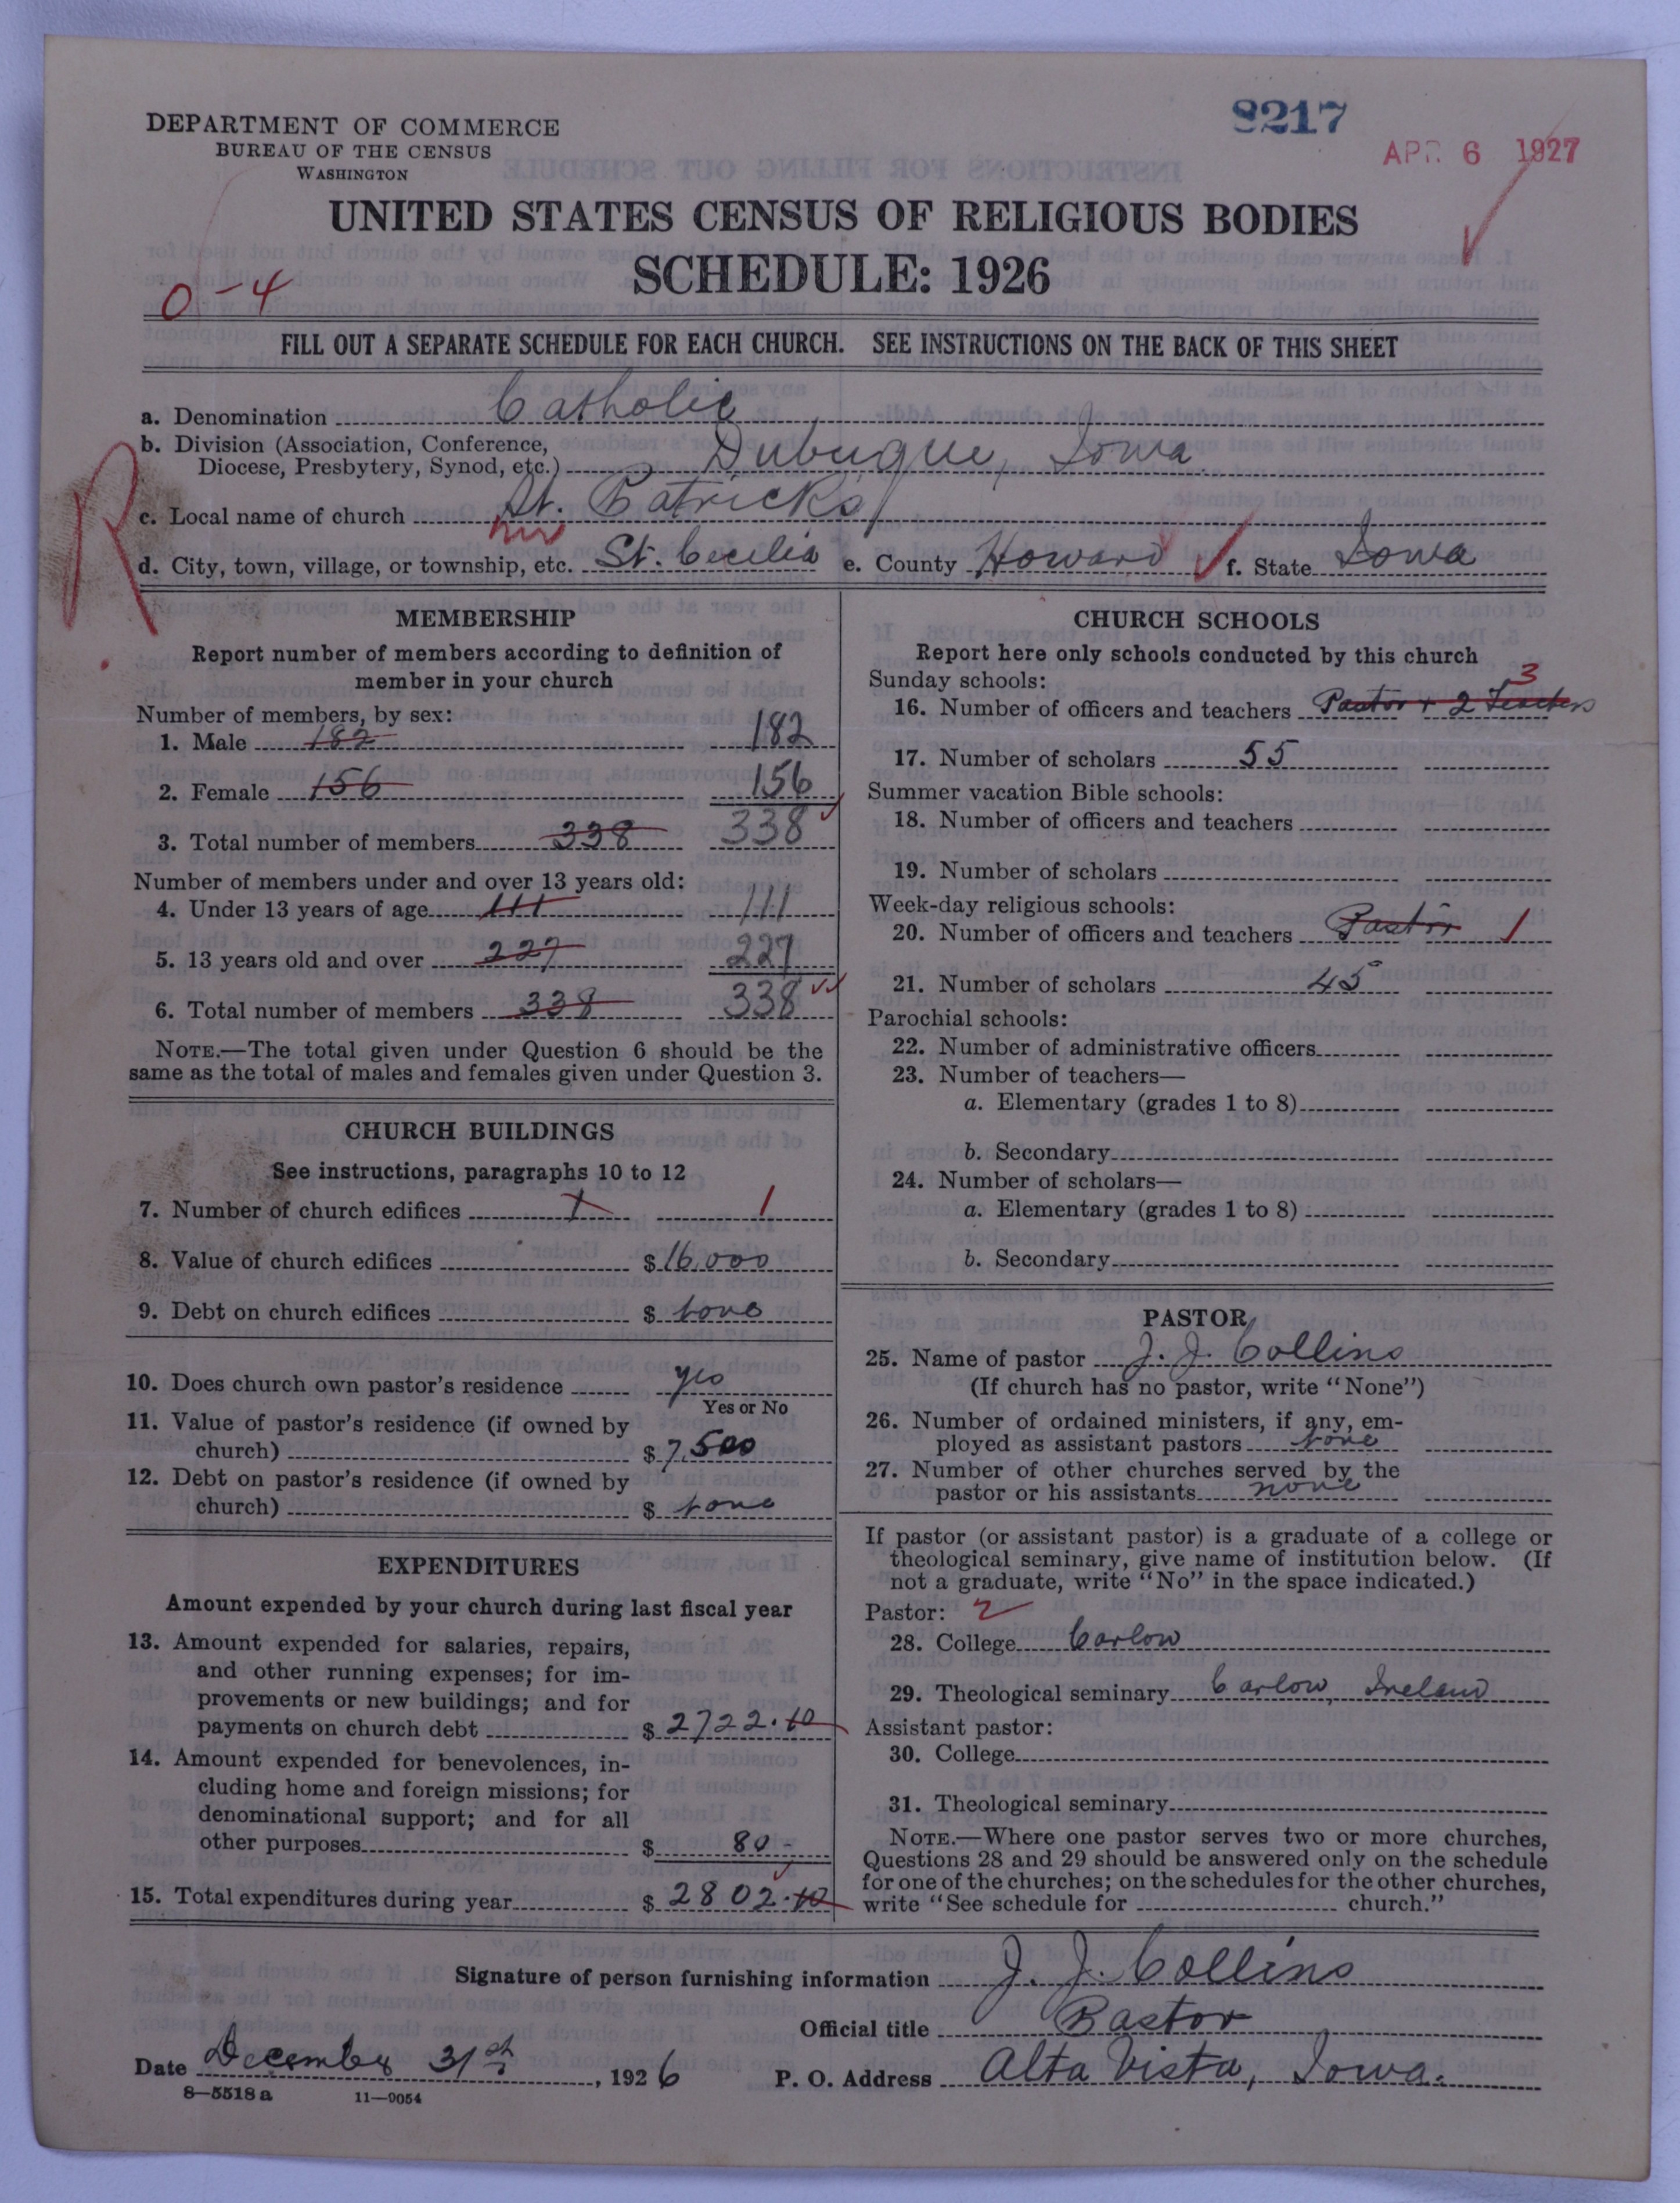 8217
APR 6 1927
DEPARTMENT OF COMMERCE
BUREAU OF THE CENSUS
WASHINGTON
UNITED STATES CENSUS OF RELIGIOUS BODIES
SCHEDULE: 1926
0-4
FILL OUT A SEPARATE SCHEDULE FOR EACH CHURCH. SEE INSTRUCTIONS ON THE BACK OF THIS SHEET
a. Denomination Catholic
b. Division (Association, Conference,
Diocese, Presbytery, Synod, etc.) Dubuque, Iowa
R
c. Local name of church St. Patrick's
d. City, town, village, or township, etc. St. Cecilia e. County Howard f. State Iowa
MEMBERSHIP
Report number of members according to definition of
member in your church
Number of members, by sex:
1. Male 182 182
2. Female 156 156
3. Total number of members 338 338
Number of members under and over 13 years old:
4. Under 13 years of age 111 111
5. 13 years old and over 227 227
6. Total number of members 338 338
NOTE.—The total given under Question 6 should be the
same as the total of males and females given under Question 3.
CHURCH BUILDINGS
See instructions, paragraphs 10 to 12
7. Number of church edifices 1 1
8. Value of church edifices $ 16,000
9. Debt on church edifices $ none
10. Does church own pastor's residence yes
Yes or No
11. Value of pastor's residence (if owned by
church) $ 7,500
12. Debt on pastor's residence (if owned by
church) $ none
EXPENDITURES
Amount expended by your church during last fiscal year
13. Amount expended for salaries, repairs,
and other running expenses; for im-
provements or new buildings; and for
payments on church debt $ 2722.10
14. Amount expended for benevolences, in-
cluding home and foreign missions; for
denominational support; and for all
other purposes $ 80 -
15. Total expenditures during year $ 2802.10
CHURCH SCHOOLS
Report here only schools conducted by this church
Sunday schools:
3
16. Number of officers and teachers Pastor + 2 Teachers
17. Number of scholars 55
Summer vacation Bible schools:
18. Number of officers and teachers
19. Number of scholars
Week-day religious schools:
20. Number of officers and teachers Pastor 1
21. Number of scholars 45
Parochial schools:
22. Number of administrative officers
23. Number of teachers—
a. Elementary (grades 1 to 8)
b. Secondary
24. Number of scholars—
a. Elementary (grades 1 to 8)
b. Secondary
PASTOR
25. Name of pastor J. J. Collins
(If church has no pastor, write "None")
26. Number of ordained ministers, if any, em-
ployed as assistant pastors none
27. Number of other churches served by the
pastor or his assistants none
If pastor (or assistant pastor) is a graduate of a college or
theological seminary, give name of institution below. (If
not a graduate, write "No" in the space indicated.)
Pastor: 2
28. College Carlow
29. Theological seminary Carlow, Ireland
Assistant pastor:
30. College
31. Theological seminary
NOTE.—Where one pastor serves two or more churches,
Questions 28 and 29 should be answered only on the schedule
for one of the churches; on the schedules for the other churches,
write "See schedule for church."
Signature of person furnishing information J. J. Collins
Official title Pastor
Date December 31st, 1926 P. O. Address Alta Vista, Iowa.
8—5518 a 11—9054